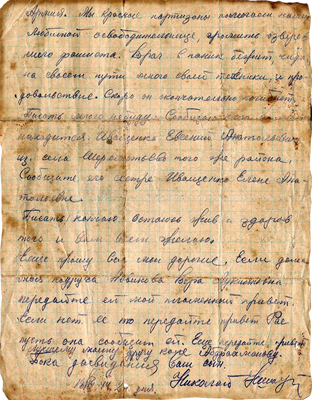 Армия. Мы красные партизаны помогаем нашей
любимой освободительнице, громить озвере-
лого фашиста. Враг в панике бежит
на своем пути много своей техники, и про-
довольствие. Скоро он окончательно погибнет.
Писать много нечего. Сообщаю
находится Иващенко Евгений Анатольевич
из села того же района.
Сообщите его сестре Иващенко Елене Ана-
тольевне.
Писать кончаю. Остаюсь жив и здоров
того и Вам всем желаю.
Еще прошу вас мои дорогие, если дома
моя подруга Новикова Вера
передайте ей мой пламенный привет.
Если нет ее то передайте привет Рае
пусть она сообщит ей. Еще передайте привет
лучшему моему другу Коле
Пока до свидания Ваш сын
Николай